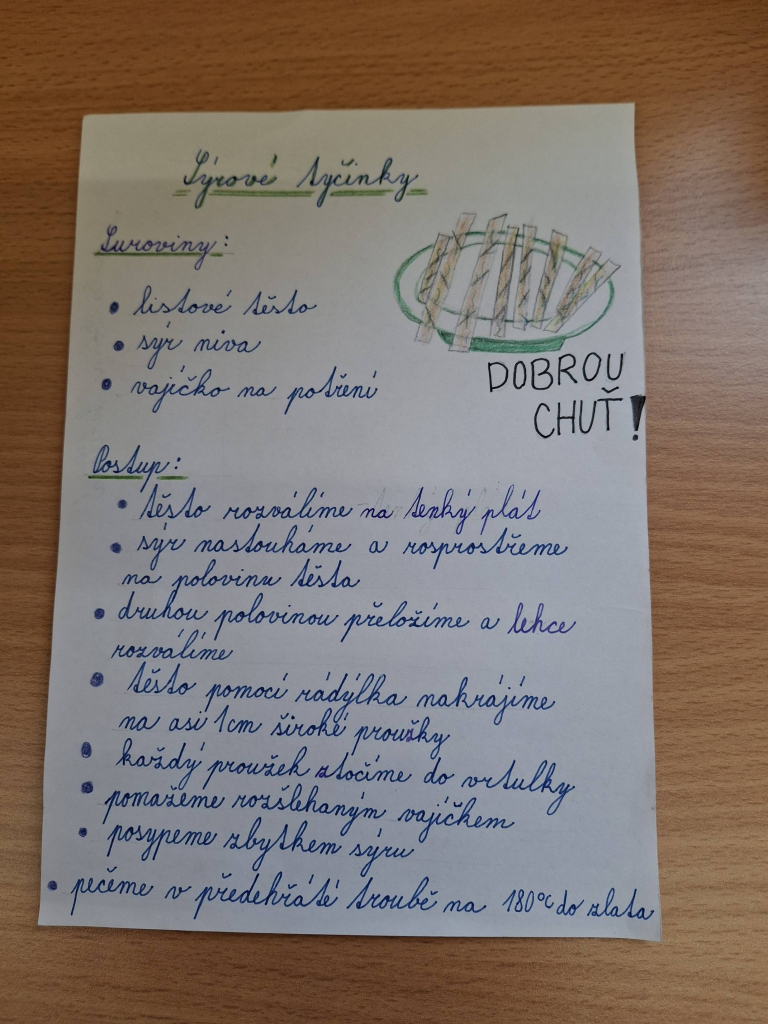 Sýrové tyčinky
Suroviny:
• listové těsto
• sýr niva
• vajíčko na potření
DOBROU
CHUŤ!
Postup:
• těsto rozválíme na tenký plát
• sýr nastouháme a rosprostřeme
na polovinu těsta
• druhou polovinou přeložíme a lehce
rozválíme
• těsto pomocí rádýlka nakrájíme
na asi 1cm široké proužky
• každý proužek ztočíme do vrtulky
• pomažeme rozšlehaným vajíčkem
• posypeme zbytkem sýru
• pečeme v předehřáté troubě na 180°C do zlata